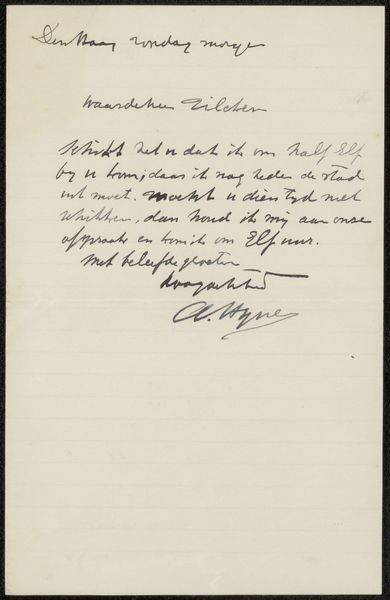 Den Haag zondag morgen
Waarde heer Zilcken
Schikt het u dat ik om half Elf
by u kom, daar ik nog heden de stad
uit moet. Mocht u dien tyd niet
schikken, dan houd ik my aan onze
afspraak en kom ik om Elf uur.
Met beleefde groeten
Hoogachtend